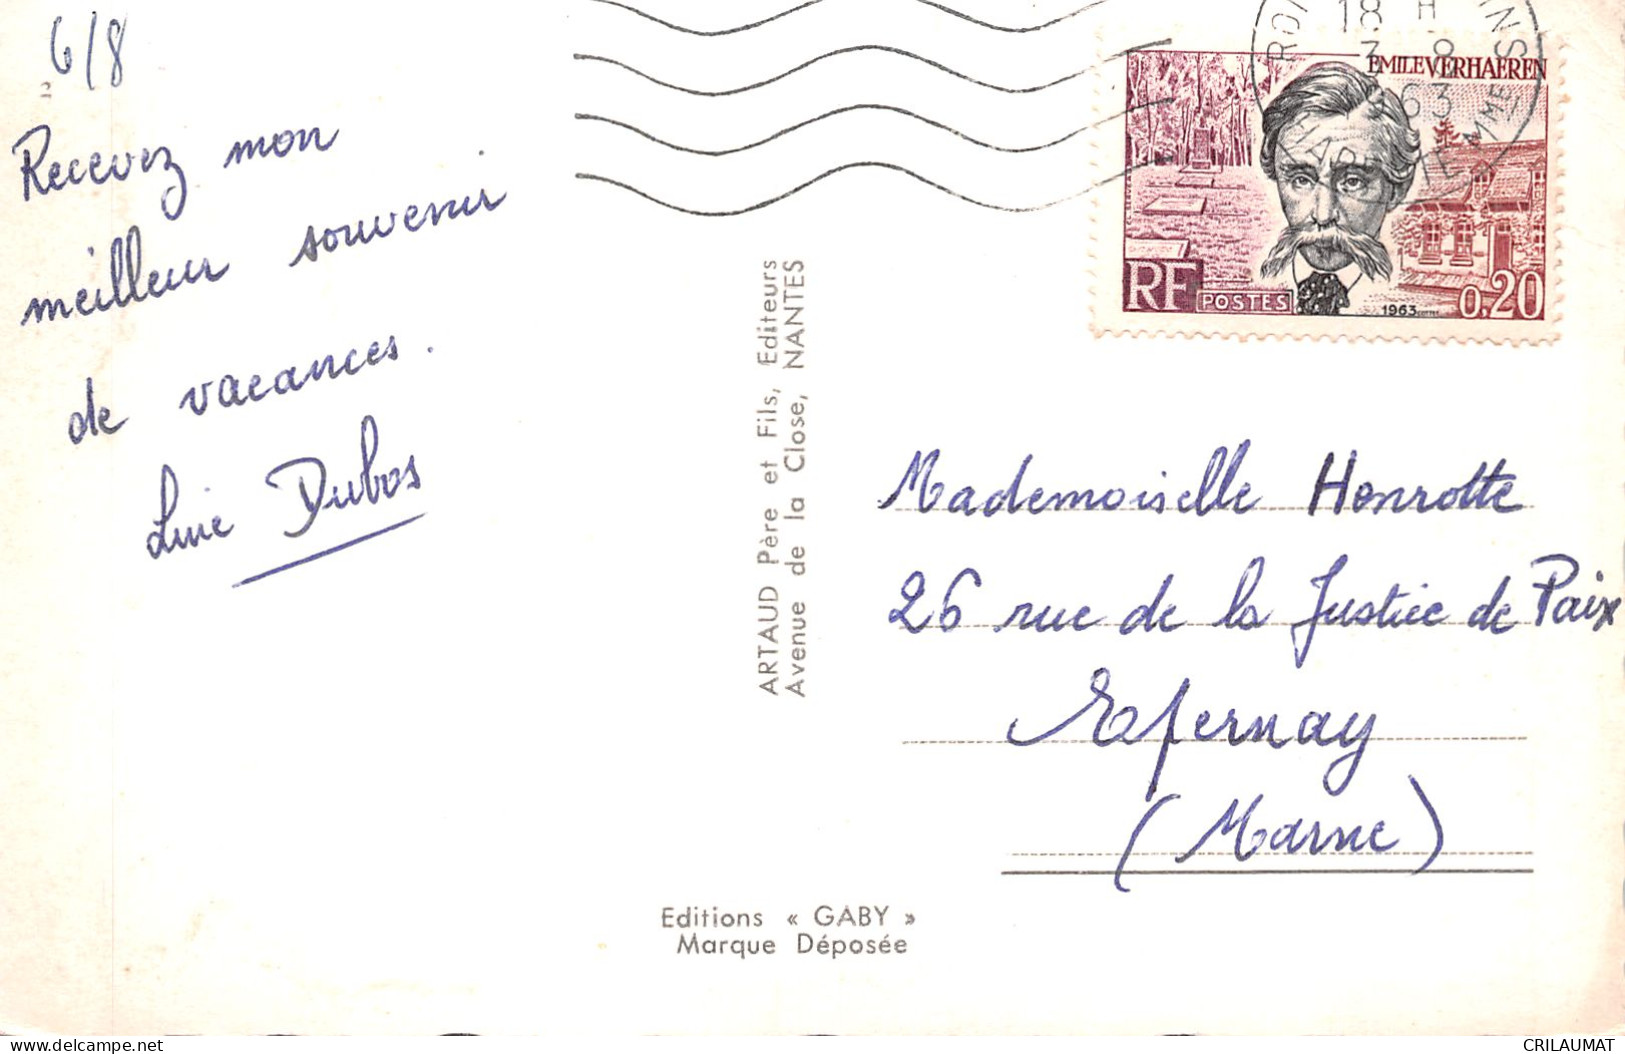 6/8
2
Recevez mon
meilleur souvenir
de vacances.
Dubos
ARTAUD Père et Fils, Editeurs
Avenue de la Close, NANTES
18 H
3 8
1963
EMILE VERHAEREN
RF POSTES
1963
0,20
Mademoiselle Henrotte
26 rue de la Justice de Paix
Epernay
(Marne)
Editions « GABY »
Marque Déposée
CRILAUMAT